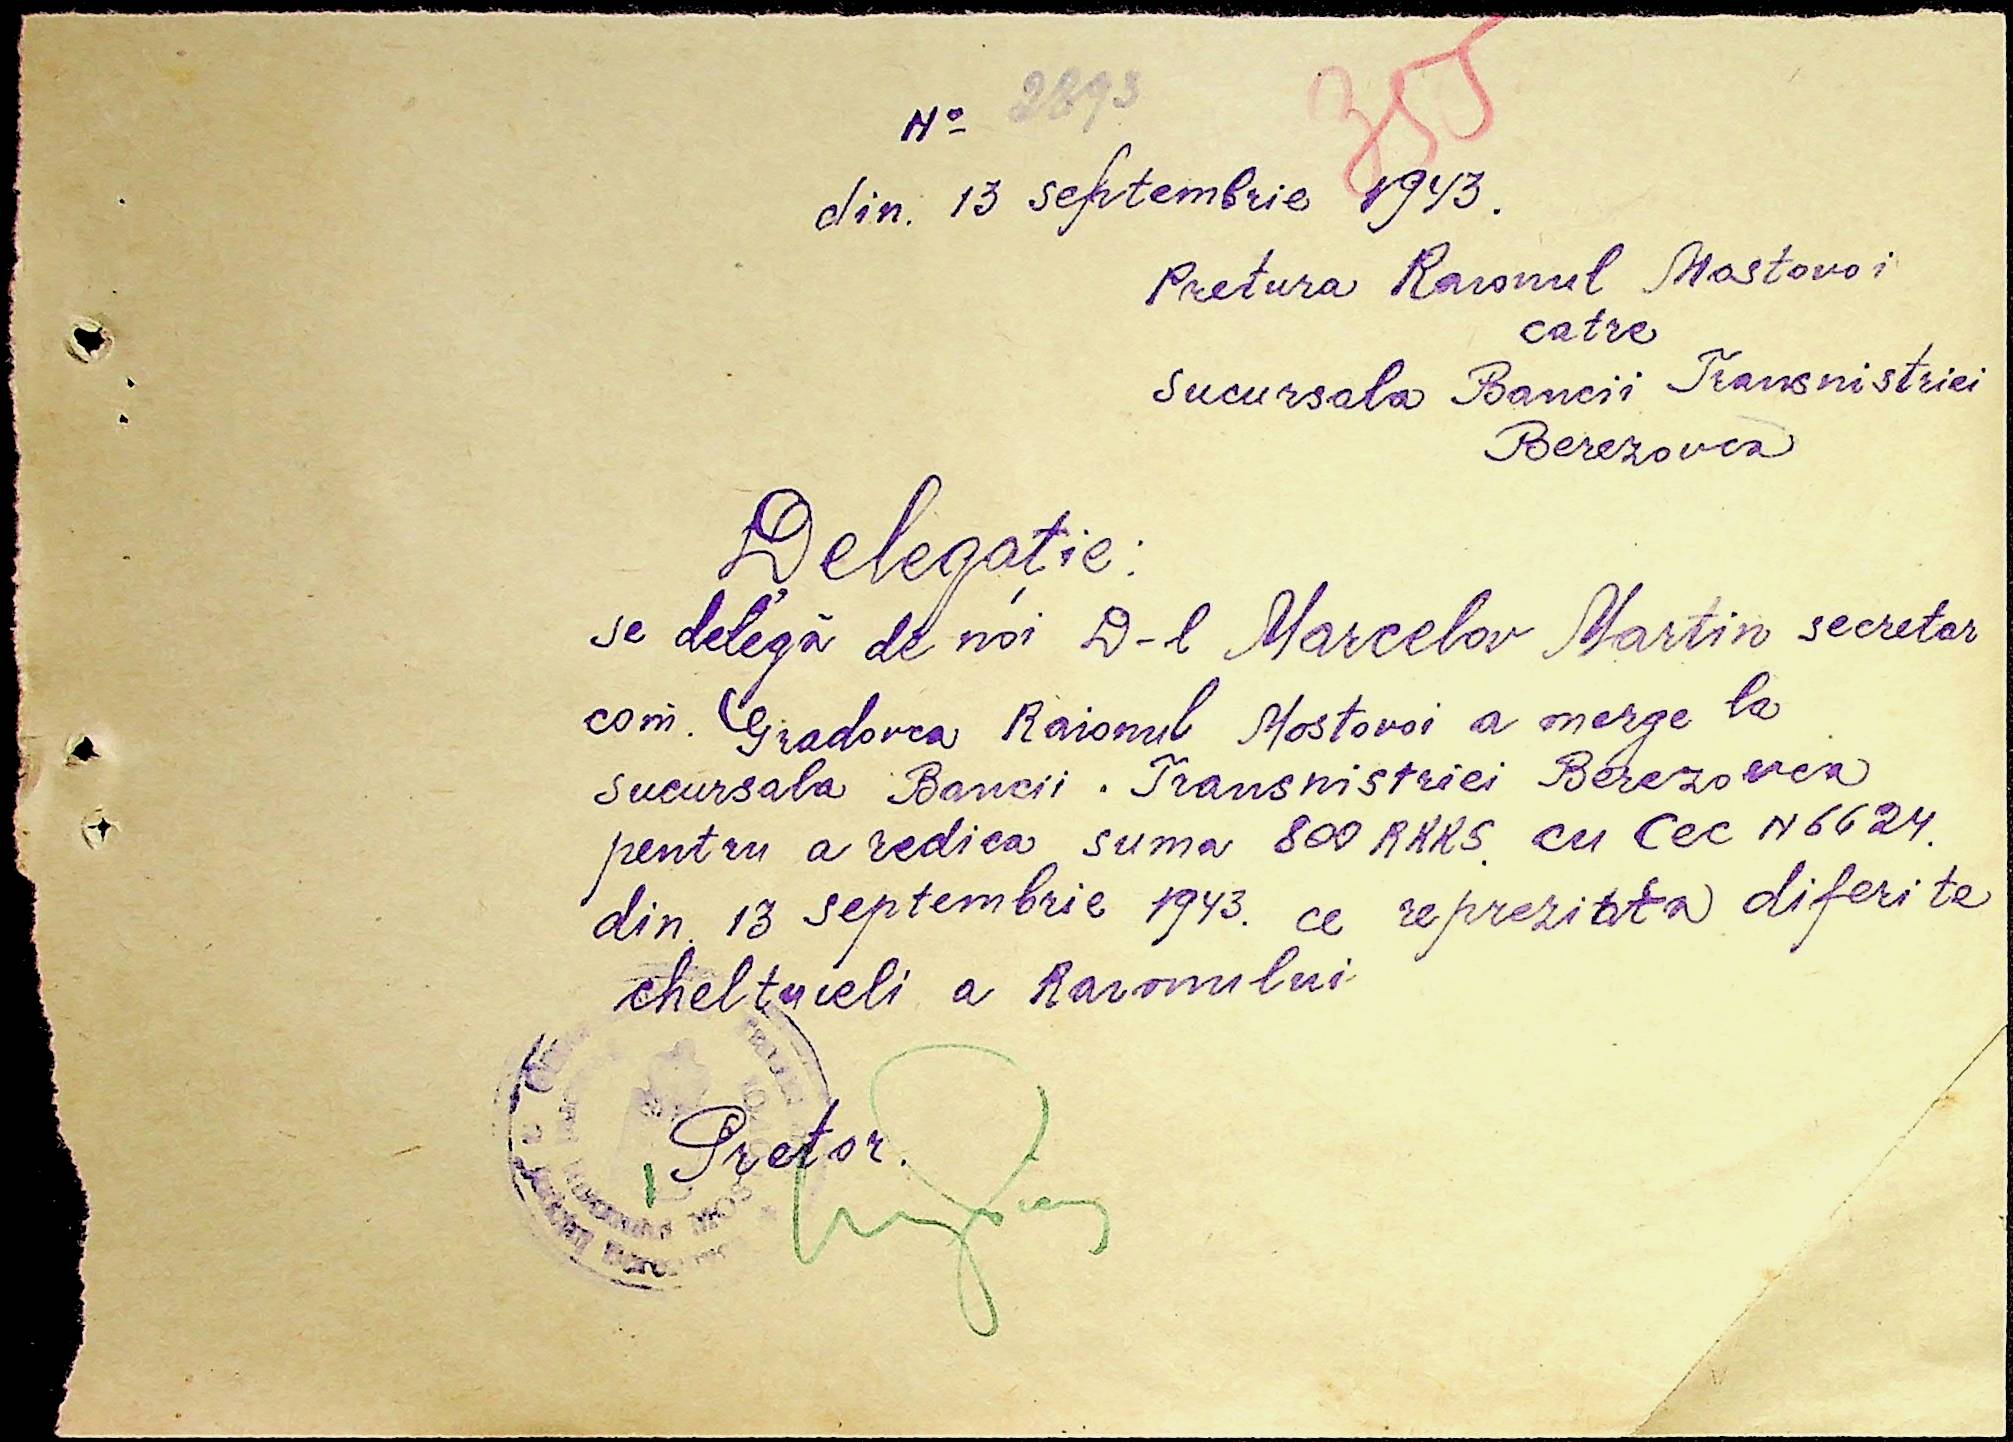 355
No 2893
din. 13 septembrie 1943.
Pretura Raionul Mostovoi
catre
Sucursala Bancii Transnistriei
Berezovca
Delegaţie:
se delegă de noi D-l Marcelov Martin secretar
com. Gradovca Raionul Mostovoi a merge la
sucursala Bancii. Transnistriei Berezovca
pentru a redica suma 800 RKKS. cu Cec N 6624.
din. 13 septembrie 1943. ce reprezintă diferite
cheltueli a Raionului
Pretor.